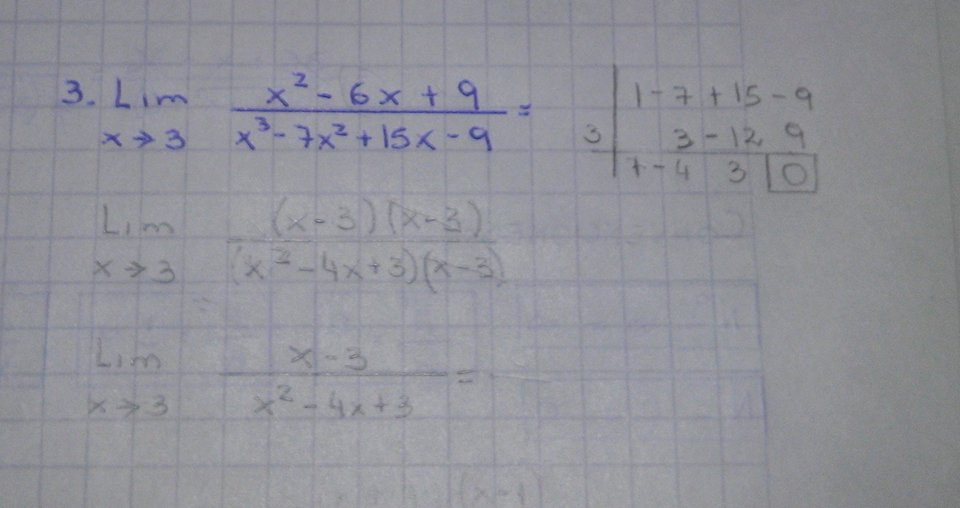 3. Lim x² - 6x + 9 =
x → 3 x³ - 7x² + 15x - 9
1 - 7 + 15 - 9
3 3 - 12 9
1 - 4 3 0
Lim (x - 3)(x - 3)
x → 3 (x² - 4x + 3)(x - 3)
=
Lim x - 3 =
x → 3 x² - 4x + 3
(x - 1)